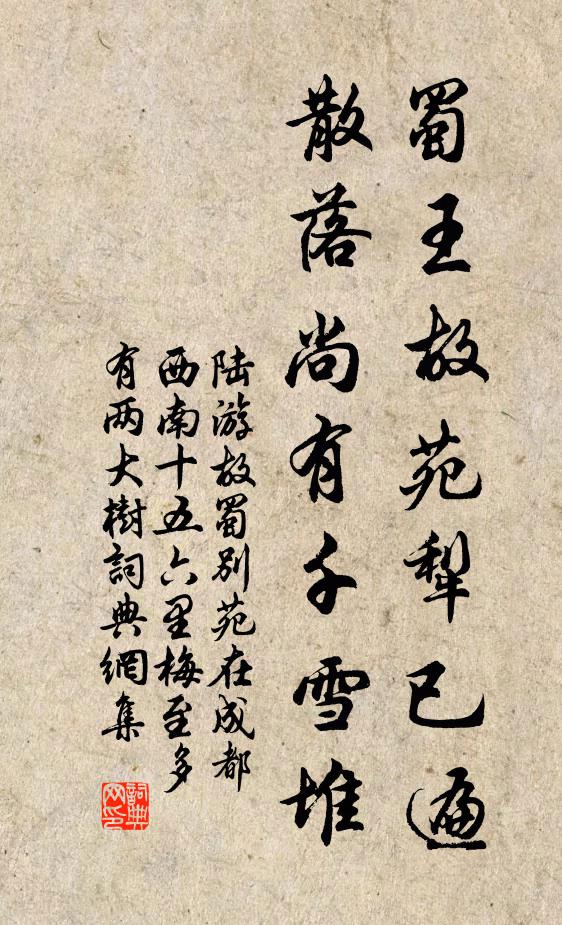 蜀王故苑犁已遍
散落尚有千雪堆
陆游故蜀别苑在成都
西南十五六里梅至多
有两大樹詞典網集
詞典网印